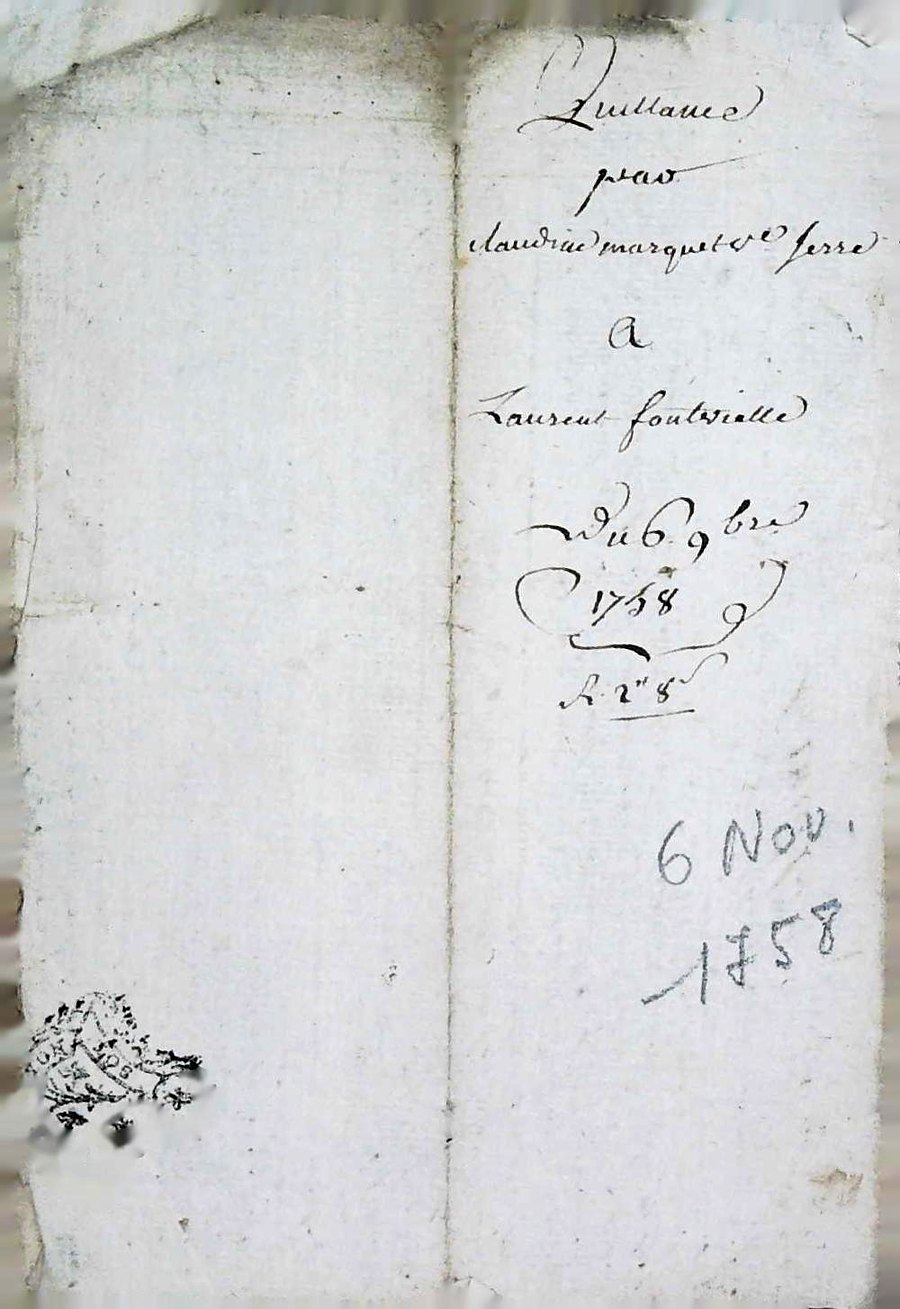 Quittance
par
claudine marquet ve serre
A
Laurent fontvielle
Du 6 9bre
1758
R 2# 8s
6 Nov.
1758